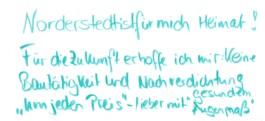 Norderstedt ist für mich Heimat!
Für die Zukunft erhoffe ich mir: Keine
Bautätigkeit und Nachverdichtung
"um jeden Preis" - lieber mit gesundem
"Augenmaß"